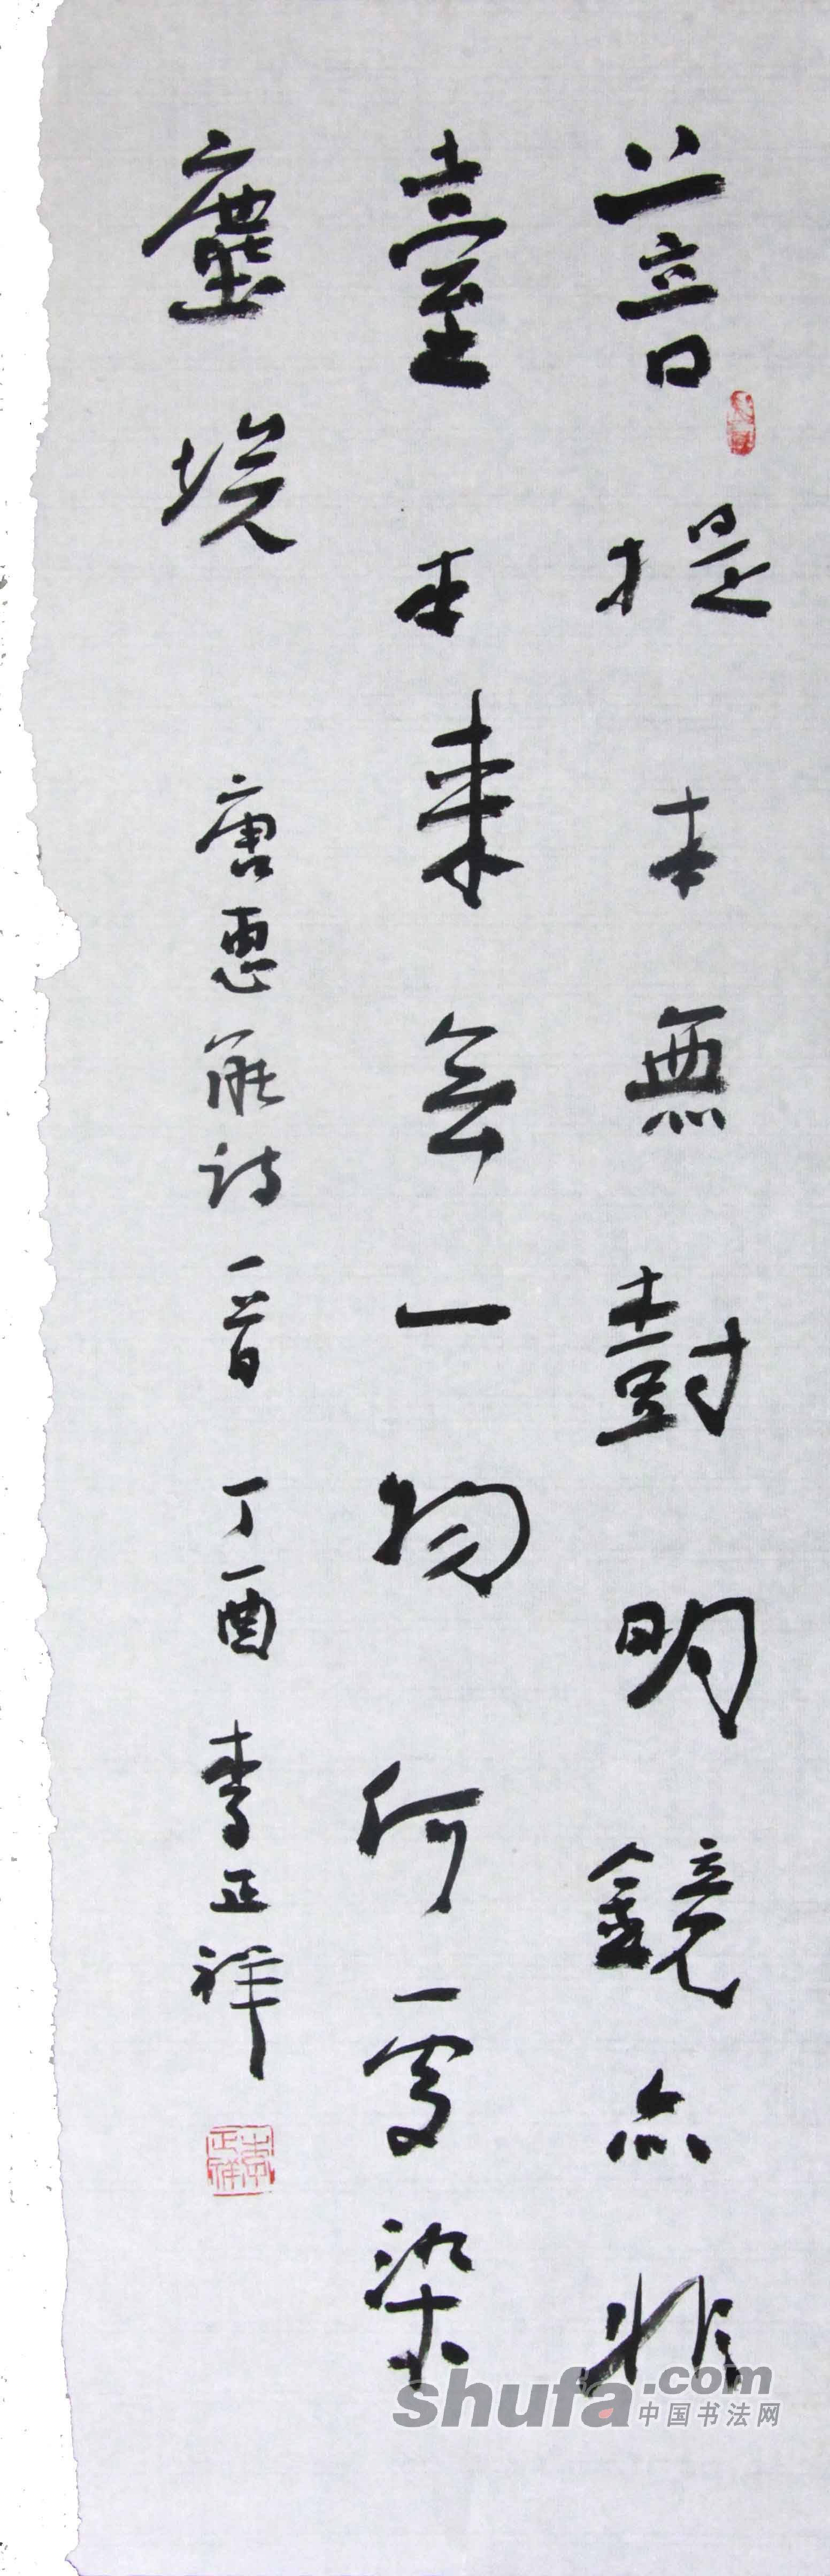 菩提本無樹明鏡亦非
臺本來無一物何處染
塵埃
唐惠能詩一首丁酉李正祥
李正祥
shufa.com
中国书法网